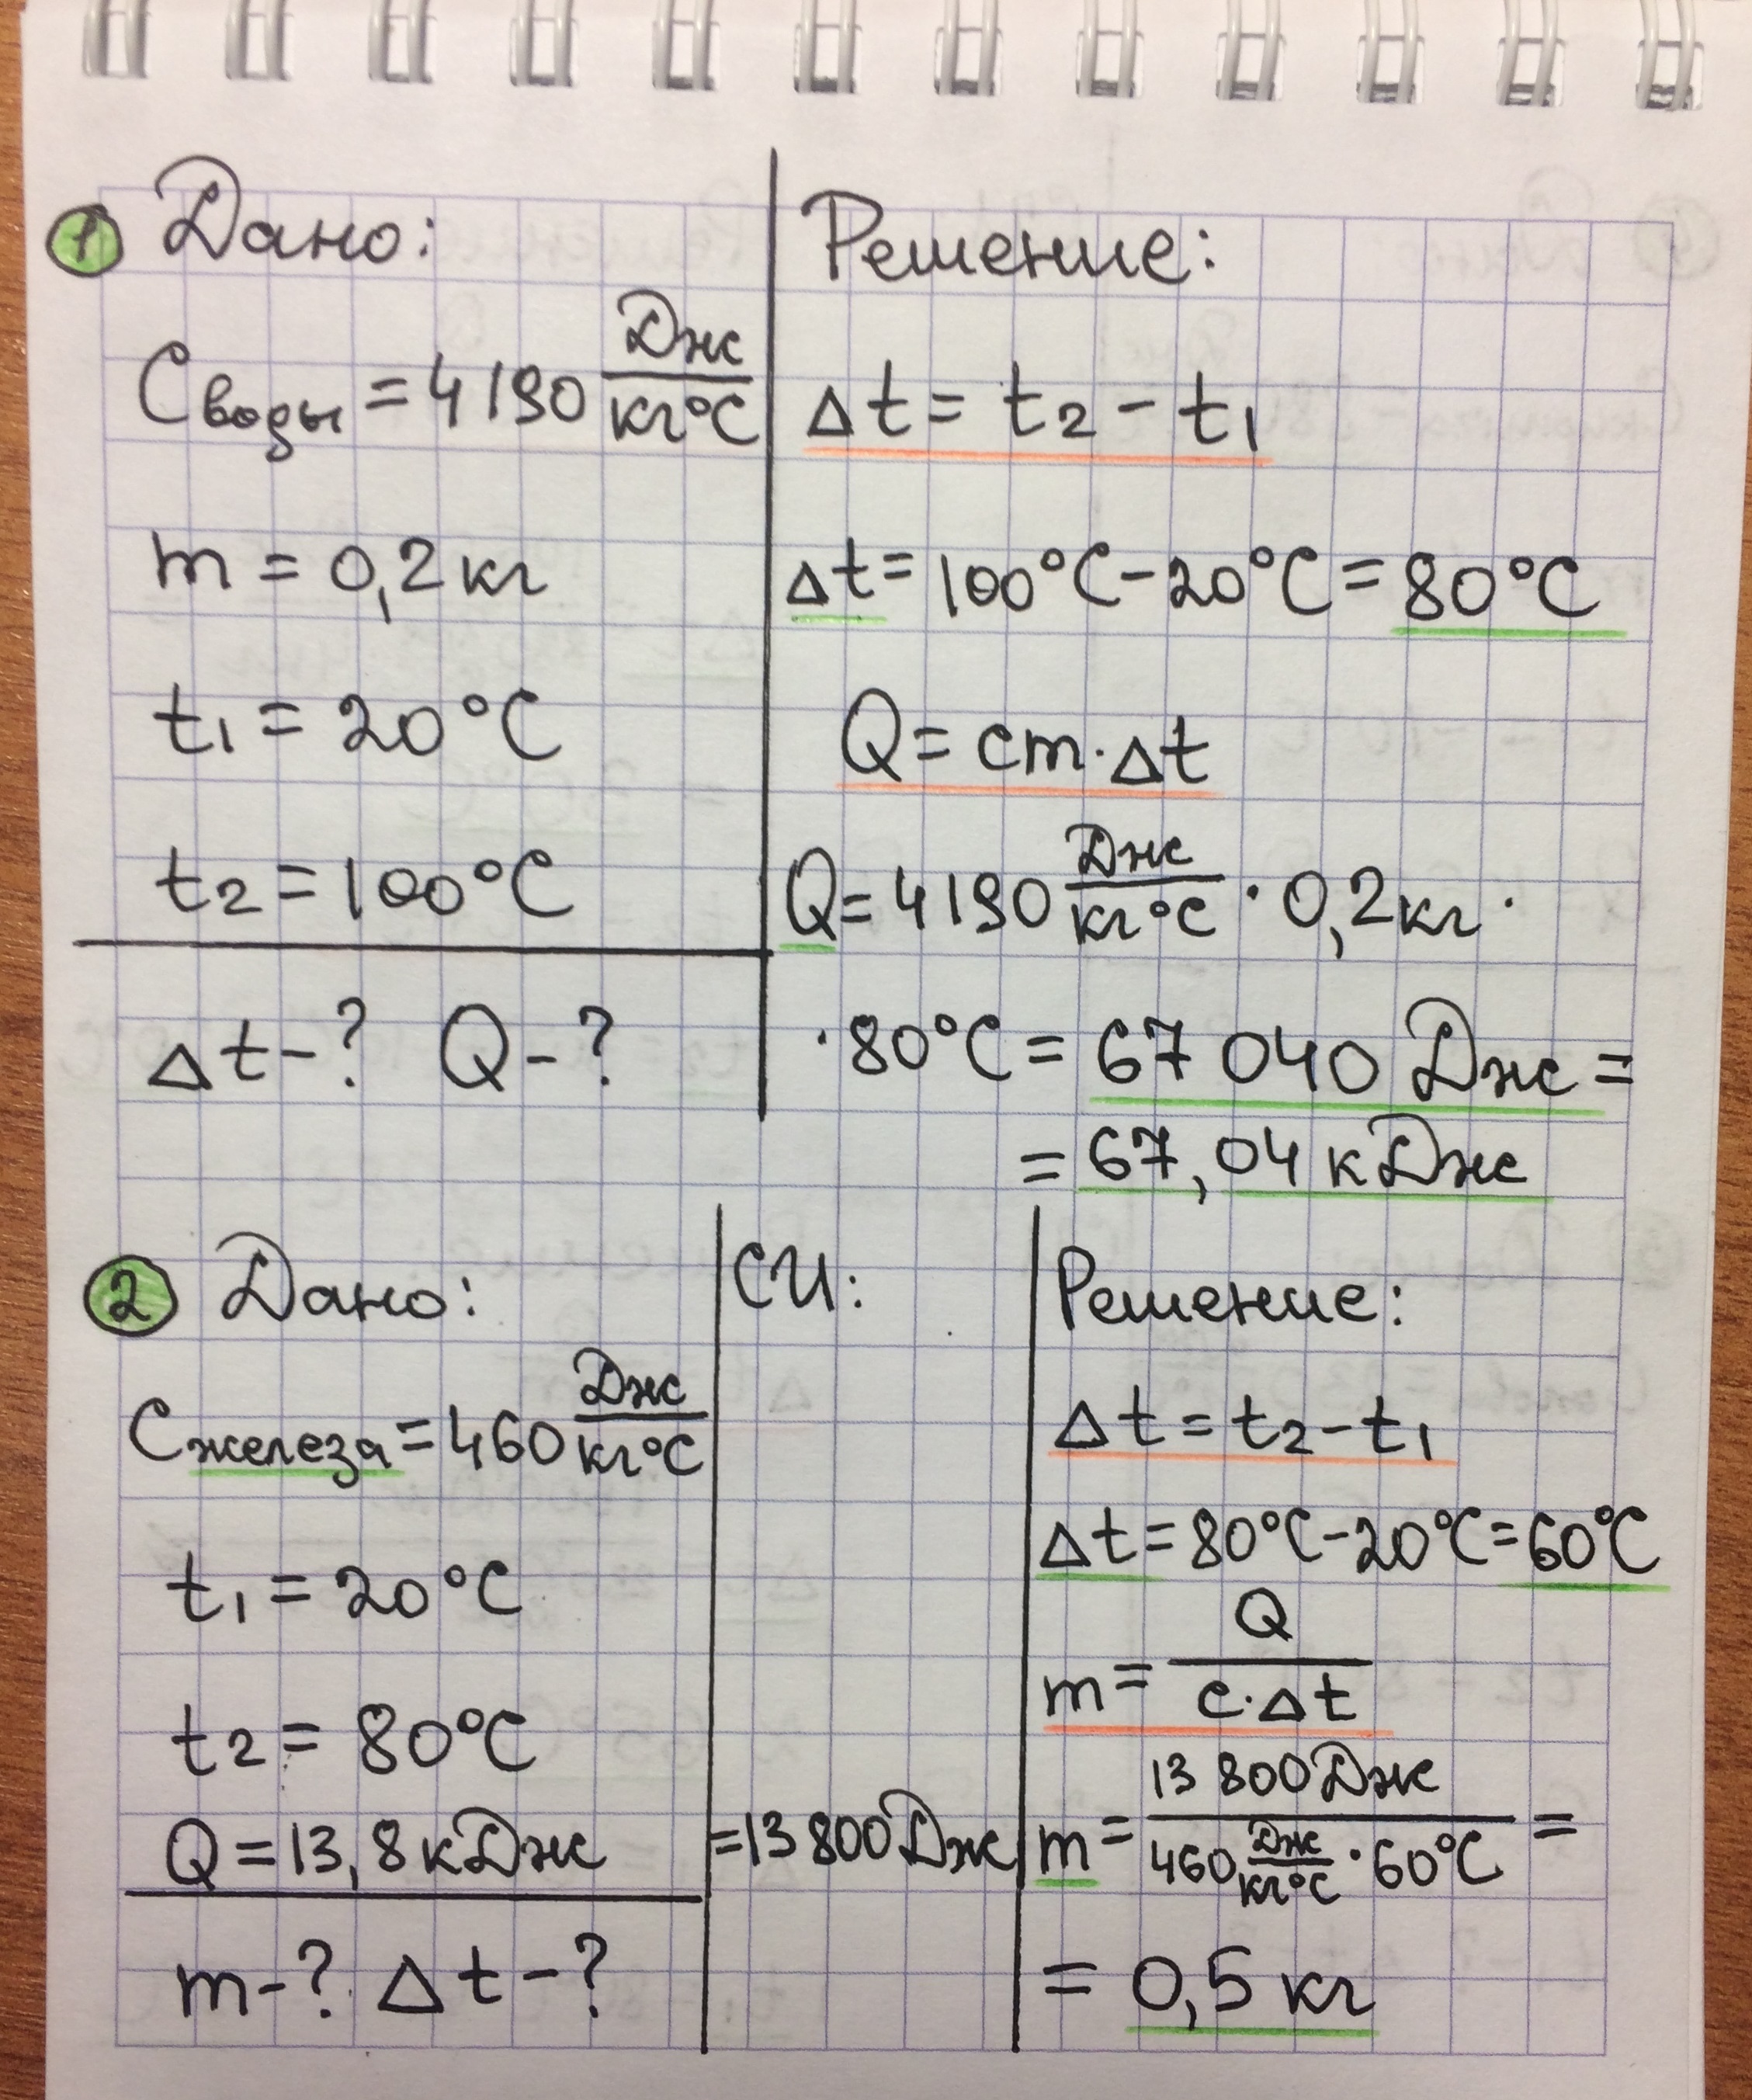 1 Дано:
Cводы = 4190 Дж/кг°C
m = 0,2 кг
t1 = 20°C
t2 = 100°C
Δt-? Q-?
Решение:
Δt = t2 - t1
Δt = 100°C - 20°C = 80°C
Q = cm·Δt
Q = 4190 Дж/кг°C · 0,2 кг ·
·80°C = 67 040 Дж =
= 67,04 кДж
2 Дано:
Cжелеза = 460 Дж/кг°C
t1 = 20°C
t2 = 80°C
Q = 13,8 кДж
m-? Δt-?
СИ:
=13 800 Дж
Решение:
Δt = t2 - t1
Δt = 80°C - 20°C = 60°C
m = Q/c·Δt
m = 13 800 Дж/460 Дж/кг°C · 60°C =
= 0,5 кг